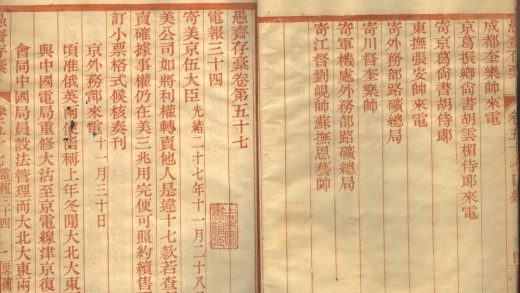 成都奎樂帥來電
京葛振卿尚書胡雲楣侍郎來電
寄京葛尚書胡侍郎
東撫張安帥來電
寄外務部路礦總局
寄川督奎樂帥
寄軍機處外務部路礦總局
寄江督劉峴帥蘇撫恩藝帥
愚齋存稾卷第五十七
電報三十四
寄美京伍大臣 光緒二十七年十一月二十八
美公司如將利權轉賣他人是違十七款若查
賣確據事權仍在美三兆用完便可照約續售
訂小票格式候核奏刊
京外務部來電 十一月三十日
頃准俄英兩使函稱上年冬間大北大東
與中國電局重修大沽至京電線津京復
會同中國局員設法管理而大北大東兩
愚齋存稾 卷五十七 電報三十四 一